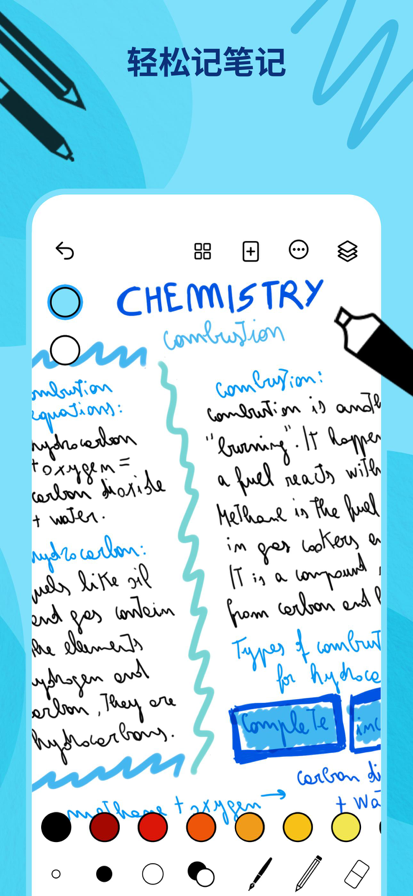 轻松记笔记
CHEMISTRY
combustion
combustion
equations:
hydrocarbon
+ oxygen =
carbon dioxide
+ water.
hydrocarbon:
fuels like oil
and gas contain
the elements
hydrogen and
carbon, They are
hydrocarbons.
combustion:
combustion is anoth
"burning". IT happen
a fuel reacts with
Methane is the fuel
in gas cookers a
IT is a compound
from carbon and h
Types of combust
for hydroca
complete
inc
carbon di
methane + oxygen →
+ wa